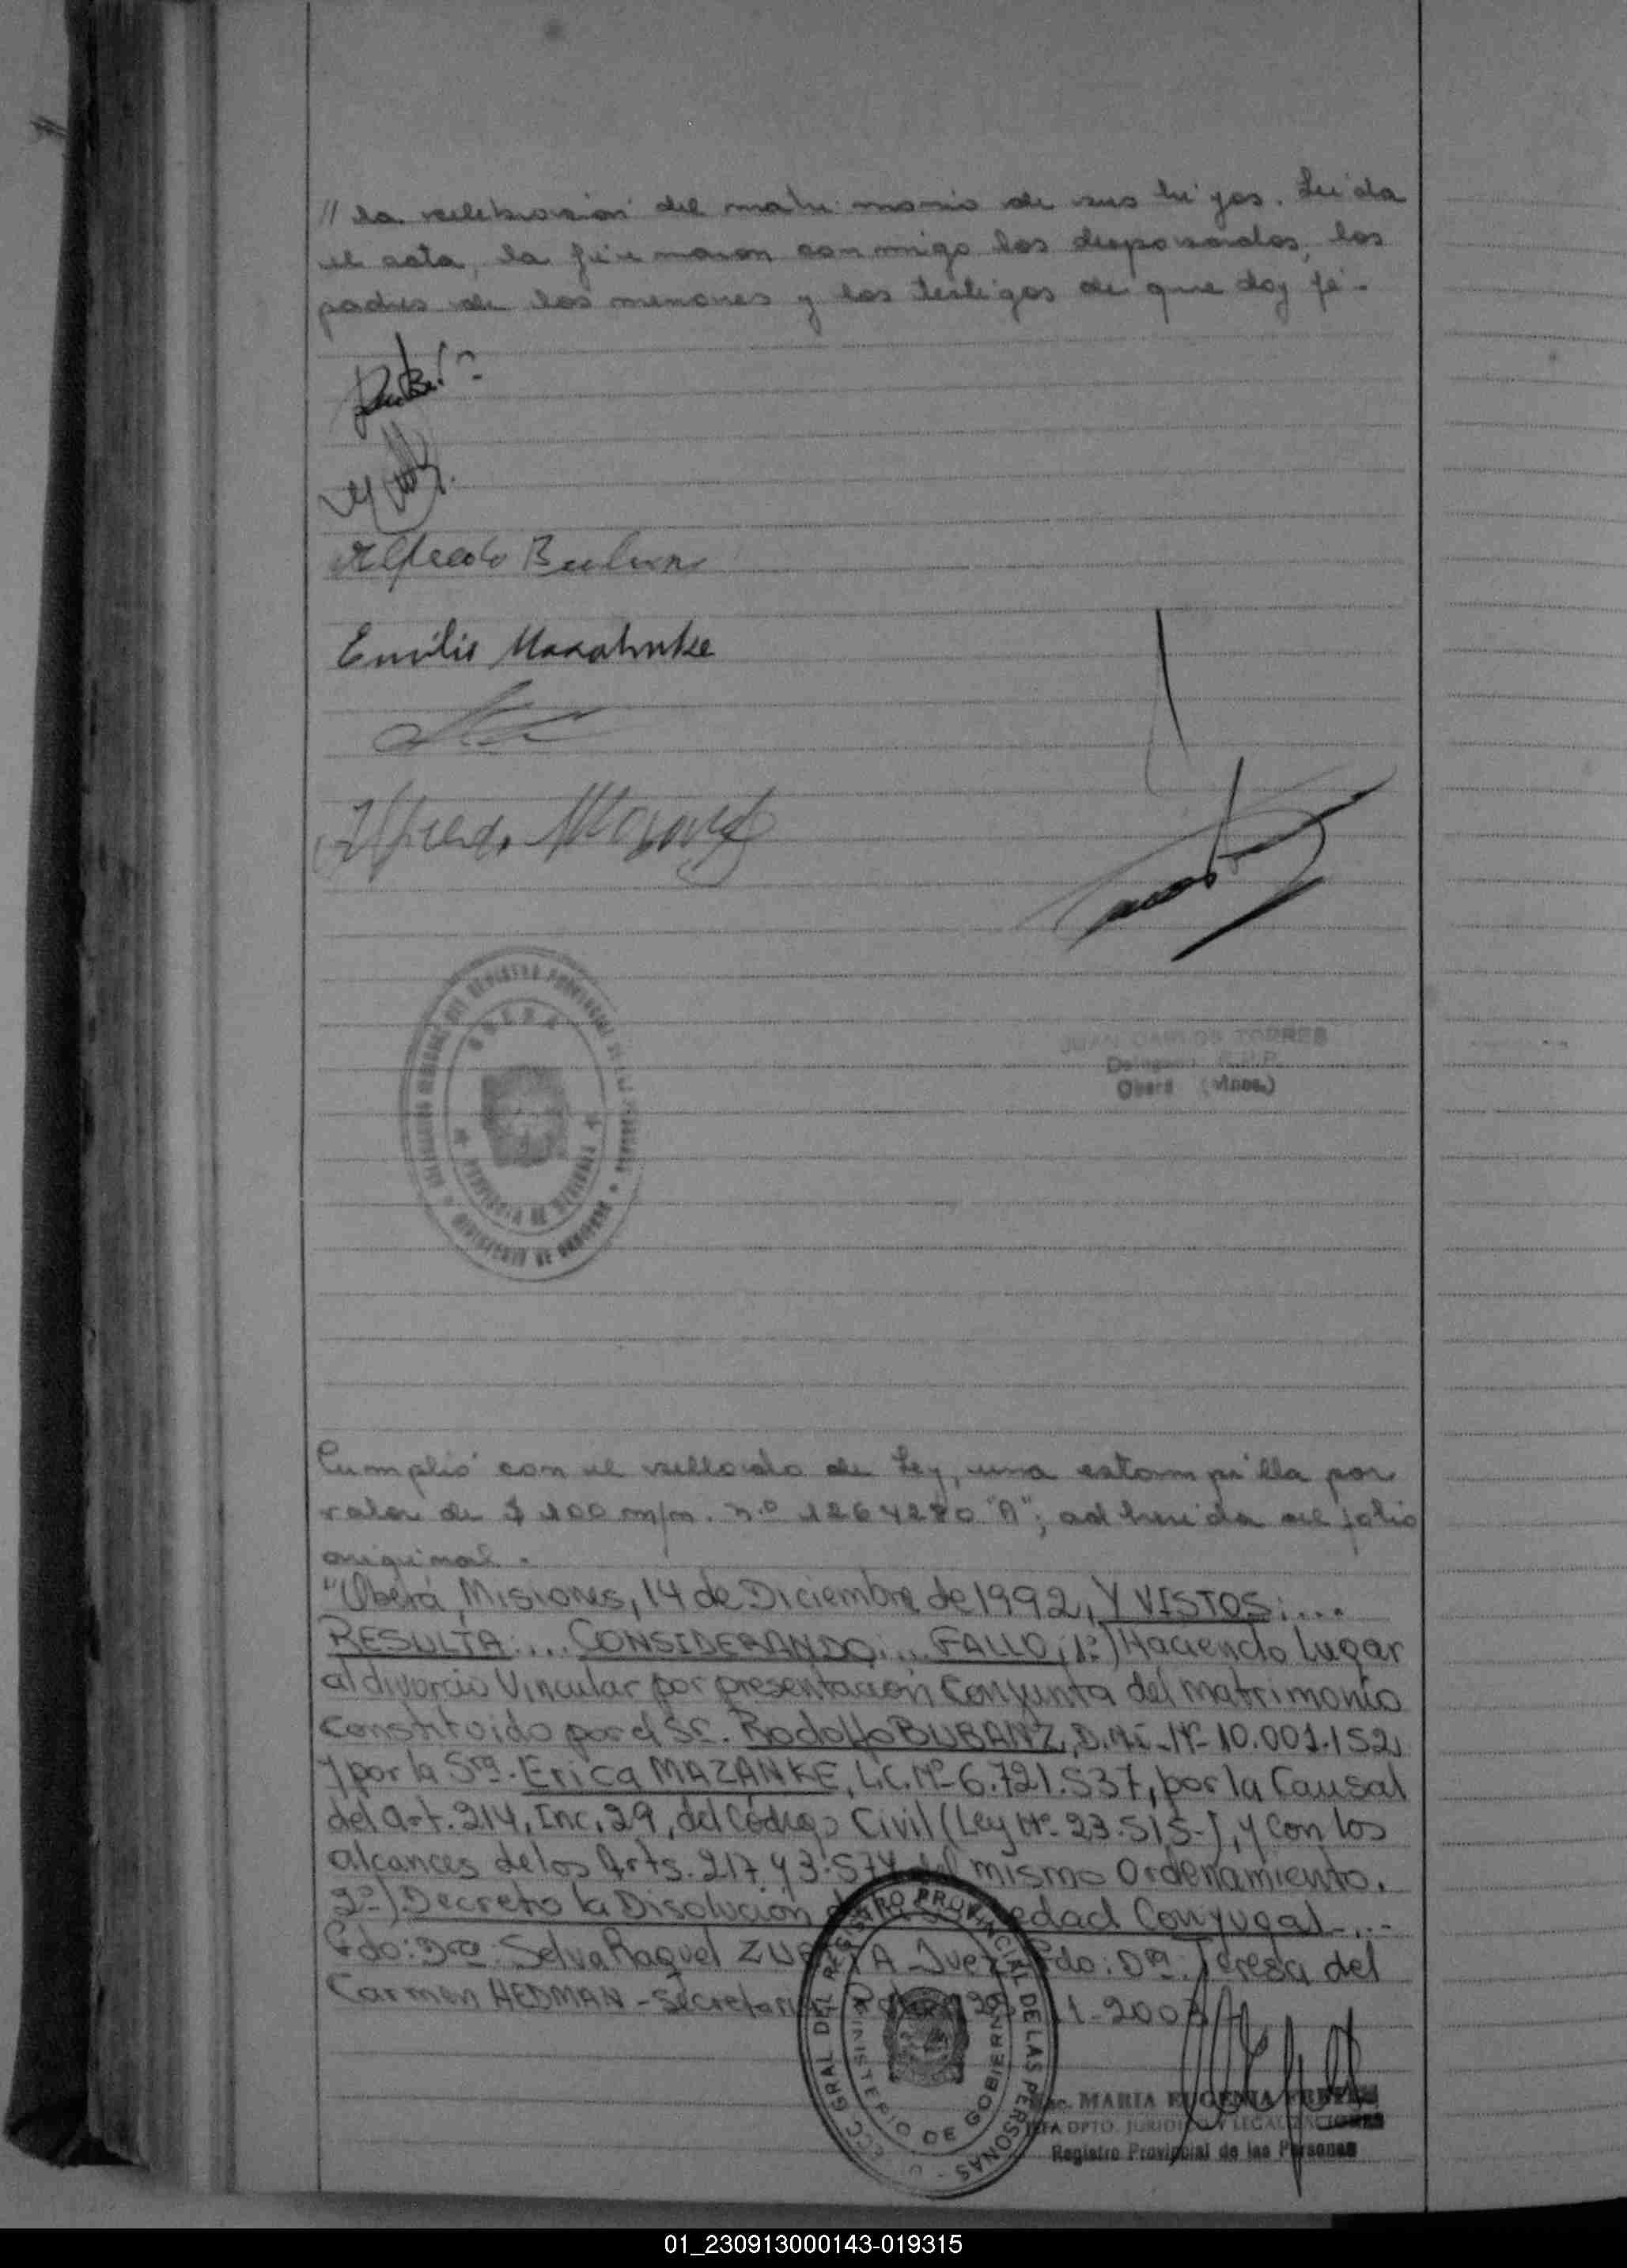 // la celebración del matrimonio de sus hijos. Leída
el acta, la firmaron conmigo los desposados, los
padres de los menores y los testigos de que doy fé.-
Alfredo Bubanz
Emilio Mazahnke
Alfredo
REGISTRO PROVINCIAL DE LAS PERSONAS
OBERA
PROVINCIA DE MISIONES
MINISTERIO DE GOBIERNO
JUAN CARLOS TORRES
Delegado R.P.P.
Oberá (Mnes.)
Cumplió con el sellado de Ley, una estampilla por
valor de $ 100 m/n. n.º 1264280 "A"; adherida al folio
original.
"Oberá, Misiones, 14 de Diciembre de 1992, Y VISTOS:...
RESULTA:... CONSIDERANDO:... FALLO: 1º) Haciendo Lugar
al divorcio Vincular por presentación Conjunta del matrimonio
Constituido por el Sr. Rodolfo BUBANZ, D.N.I. Nº 10.001.152,
y por la Sra. Erica MAZANKE, L.C. Nº 6.721.537, por la Causal
del art. 214, Inc. 2º, del Código Civil (Ley Nº 23.515-), y con los
alcances de los Arts. 217 y 3.574 del mismo Ordenamiento.
2º) Decreto la Disolución edad Conyugal-...-
Fdo: Dra. Selva Raquel ZU TA-Juez Fdo: Dra. Teresa del
Carmen HEDMAN-Secretari 1-2003
GRAL DEL REGISTRO PROVINCIAL DE LAS PERSONAS
MINISTERIO DE GOBIERNO
MARIA EUGENIA
JEFA DPTO. JURIDICO Y LEGALIZACIONES
Registro Provincial de las Personas
01_230913000143-019315